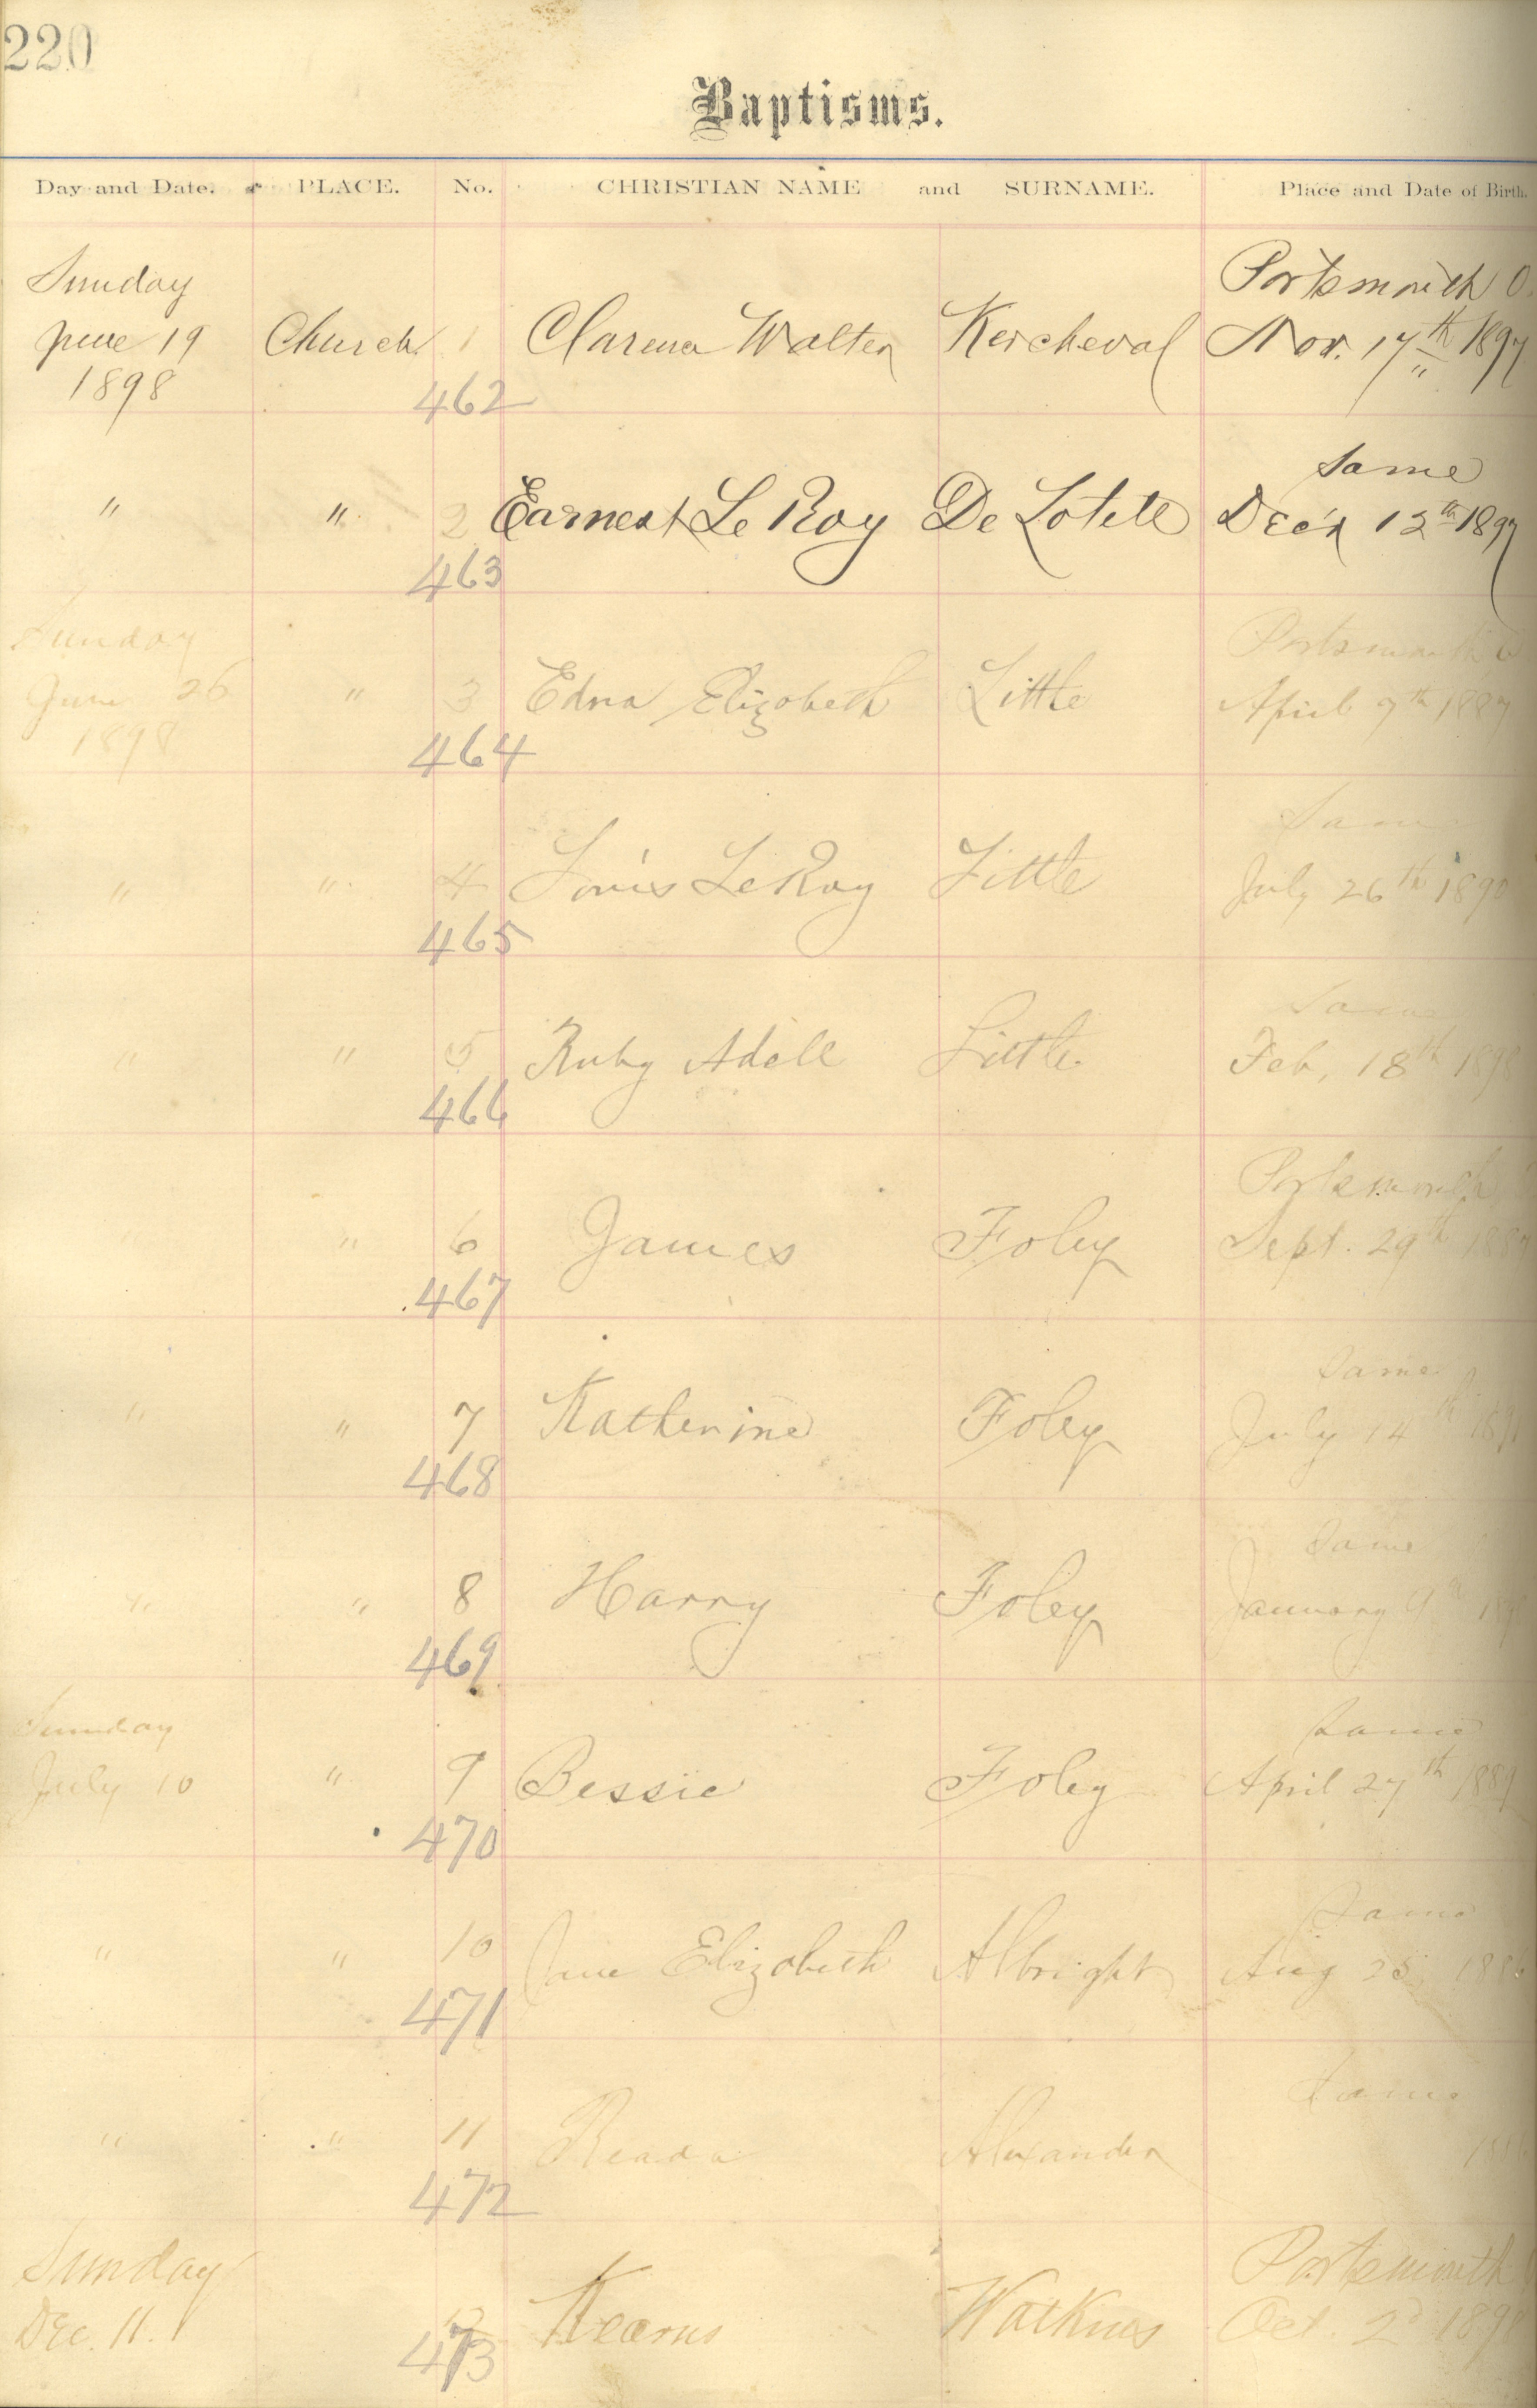 220
Baptisms.
Day and Date. PLACE. No. CHRISTIAN NAME and SURNAME. Place and Date of Birth.
Sunday Portsmouth O.
June 19 Church 1 Clarence Walter Kercheval Nov. 17th 1897
1898
462
Same
" " 2 Earnest Le Roy De Lotelle Dec'r 12th 1897
463
Sunday Portsmouth O
June 26 " 3 Edna Elizabeth Little April 9th 1887
1898
464
Same
" " 4 Louis LeRoy Little July 26th 1890
465
Same
" " 5 Ruby Adell Little. Feb, 18th 1898
466
Portsmouth
" " 6 James Foley Sept. 29th
467
Same
" " 7 Katherine Foley July 14th
468
Same
" " 8 Harry Foley January 9th
469
Sunday Same
July 10 " 9 Bessie Foley April 27th 1889
470
Same
" " 10 Jane Elizabeth Albright Aug 25
471
Same
" " 11 Reada Alexander
472
Sunday Portsmouth
Dec. 11. 12 Kearns Watkins Oct. 2d 1898
473